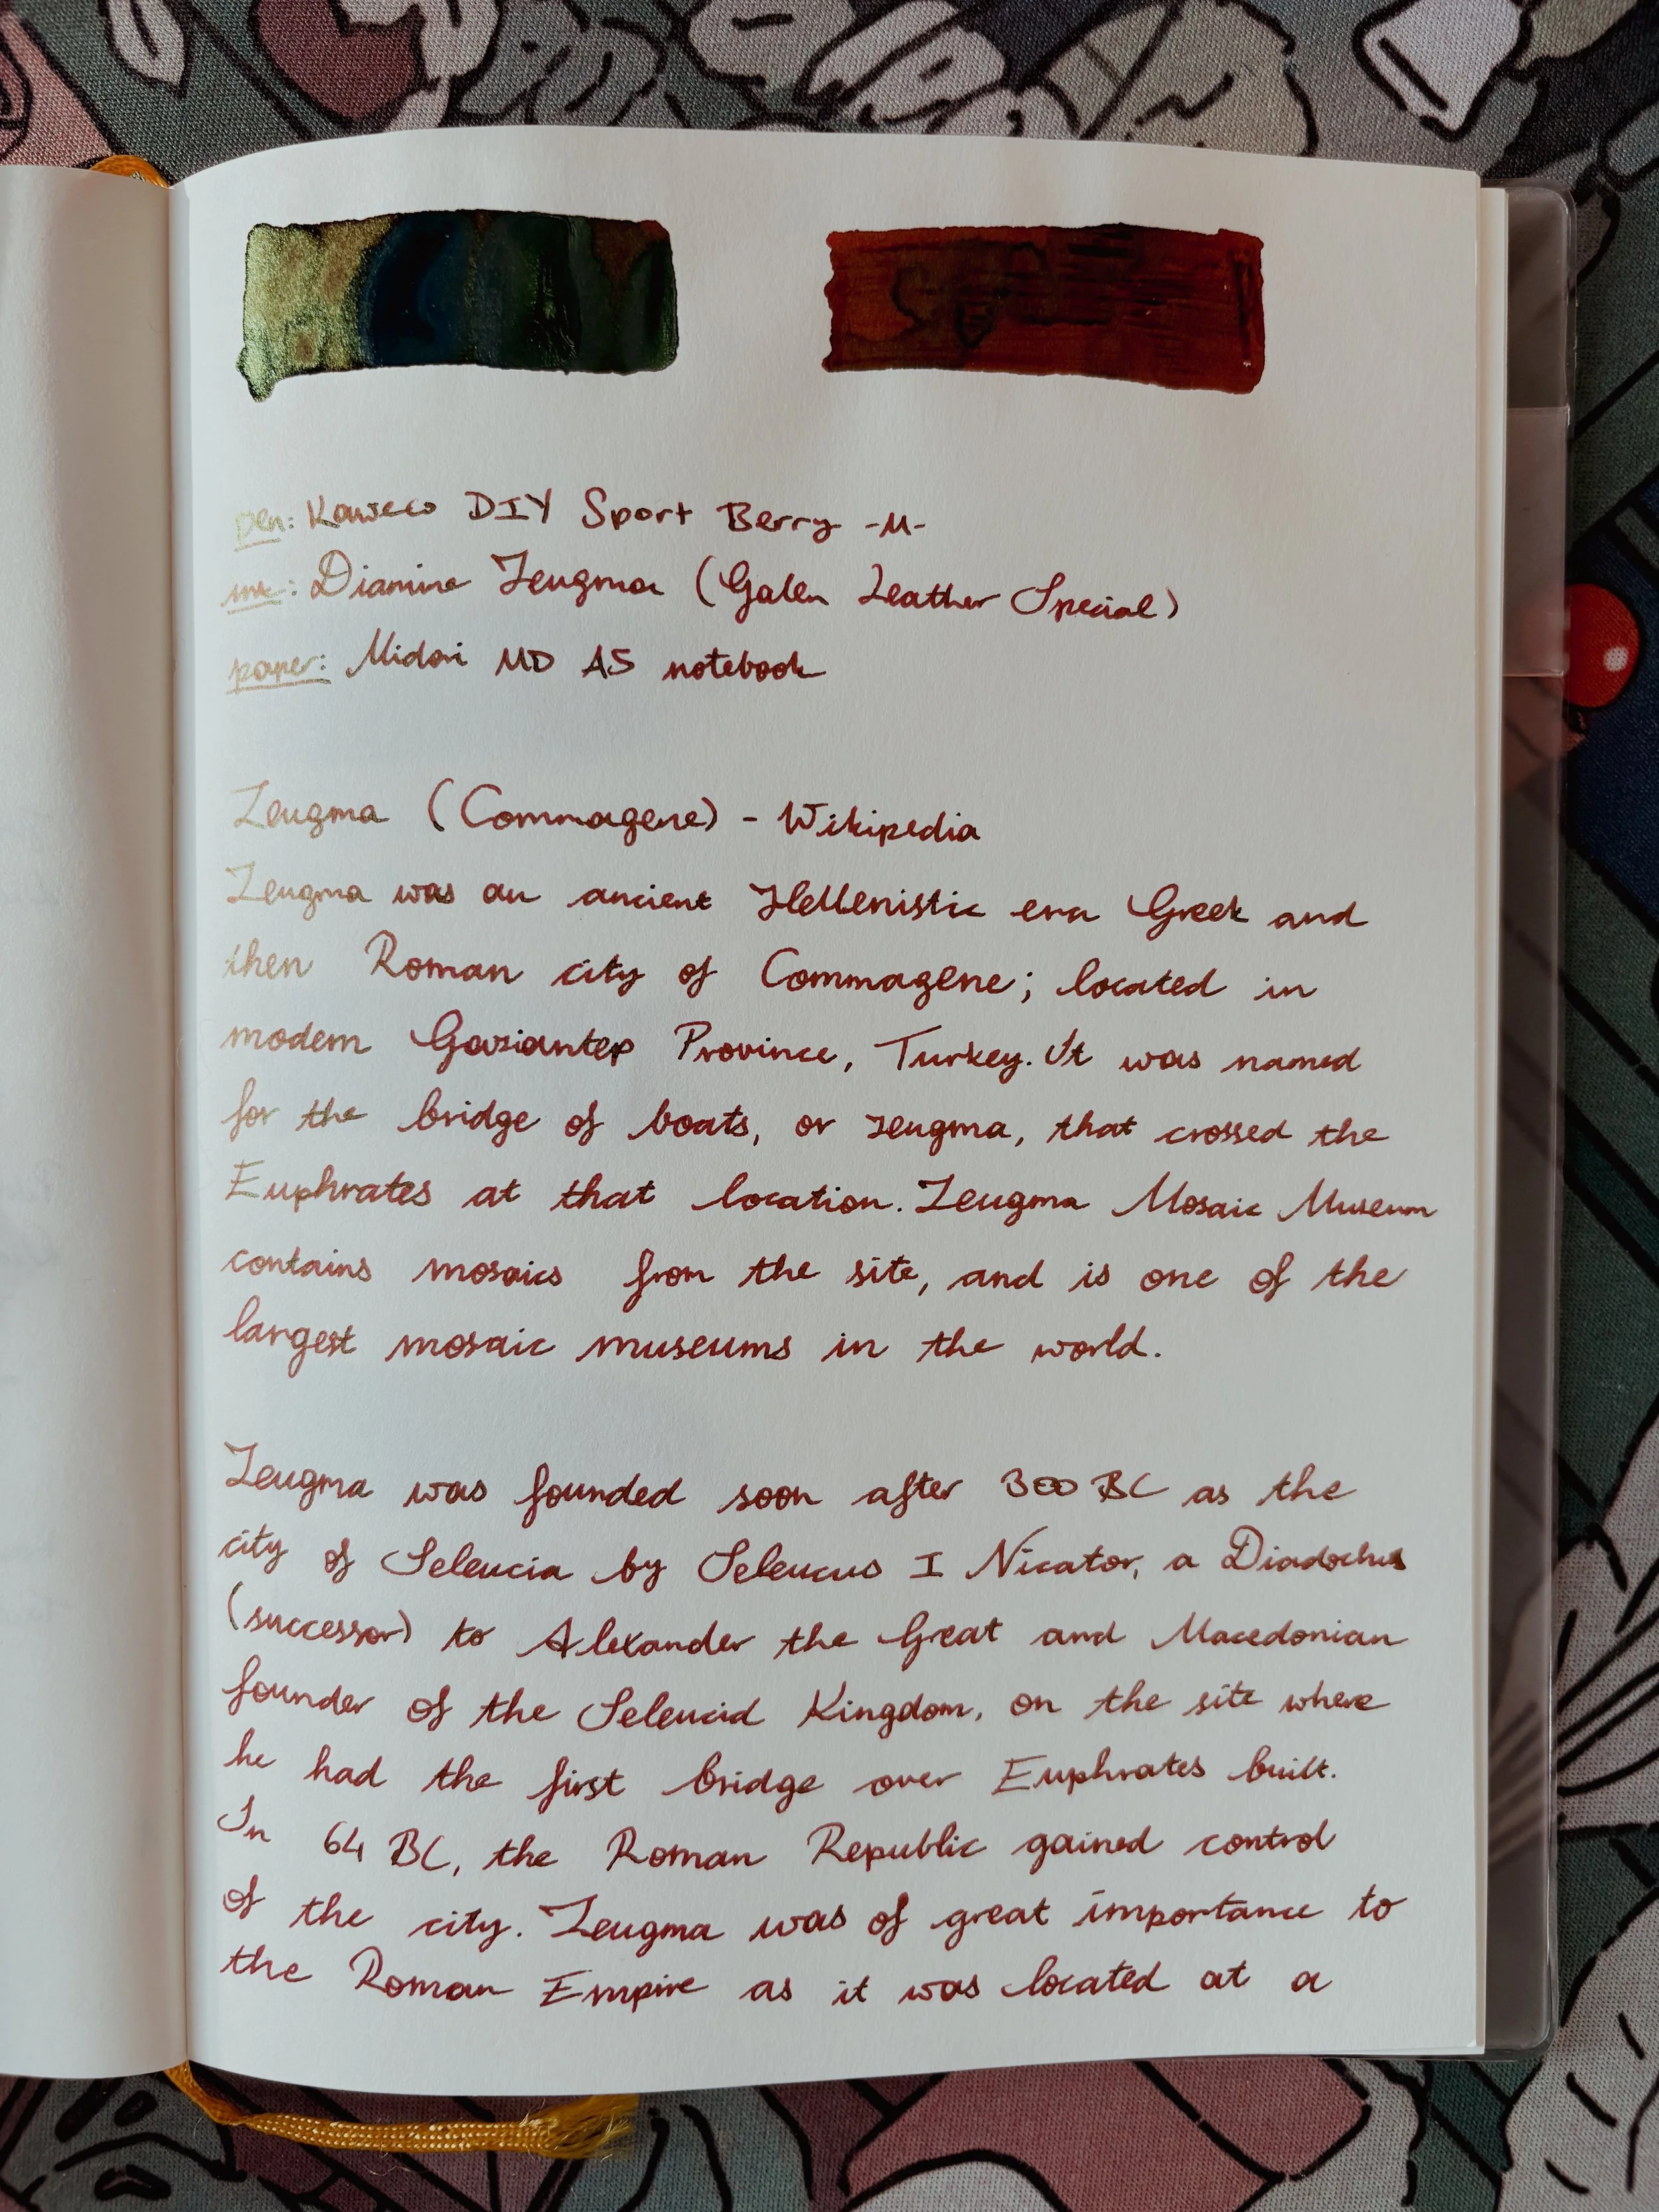 pen: Kaweco DIY Sport Berry -M-
ink: Diamine Zeugma (Galen Leather Special)
paper: Midori MD A5 notebook
Zeugma (Commagene) - Wikipedia
Zeugma was an ancient Hellenistic era Greek and
then Roman city of Commagene; located in
modern Gaziantep Province, Turkey. It was named
for the bridge of boats, or zeugma, that crossed the
Euphrates at that location. Zeugma Mosaic Museum
contains mosaics from the site, and is one of the
largest mosaic museums in the world.
Zeugma was founded soon after 300 BC as the
city of Seleucia by Seleucus I Nicator, a Diadochus
(successor) to Alexander the Great and Macedonian
founder of the Seleucid Kingdom, on the site where
he had the first bridge over Euphrates built.
In 64 BC, the Roman Republic gained control
of the city. Zeugma was of great importance to
the Roman Empire as it was located at a